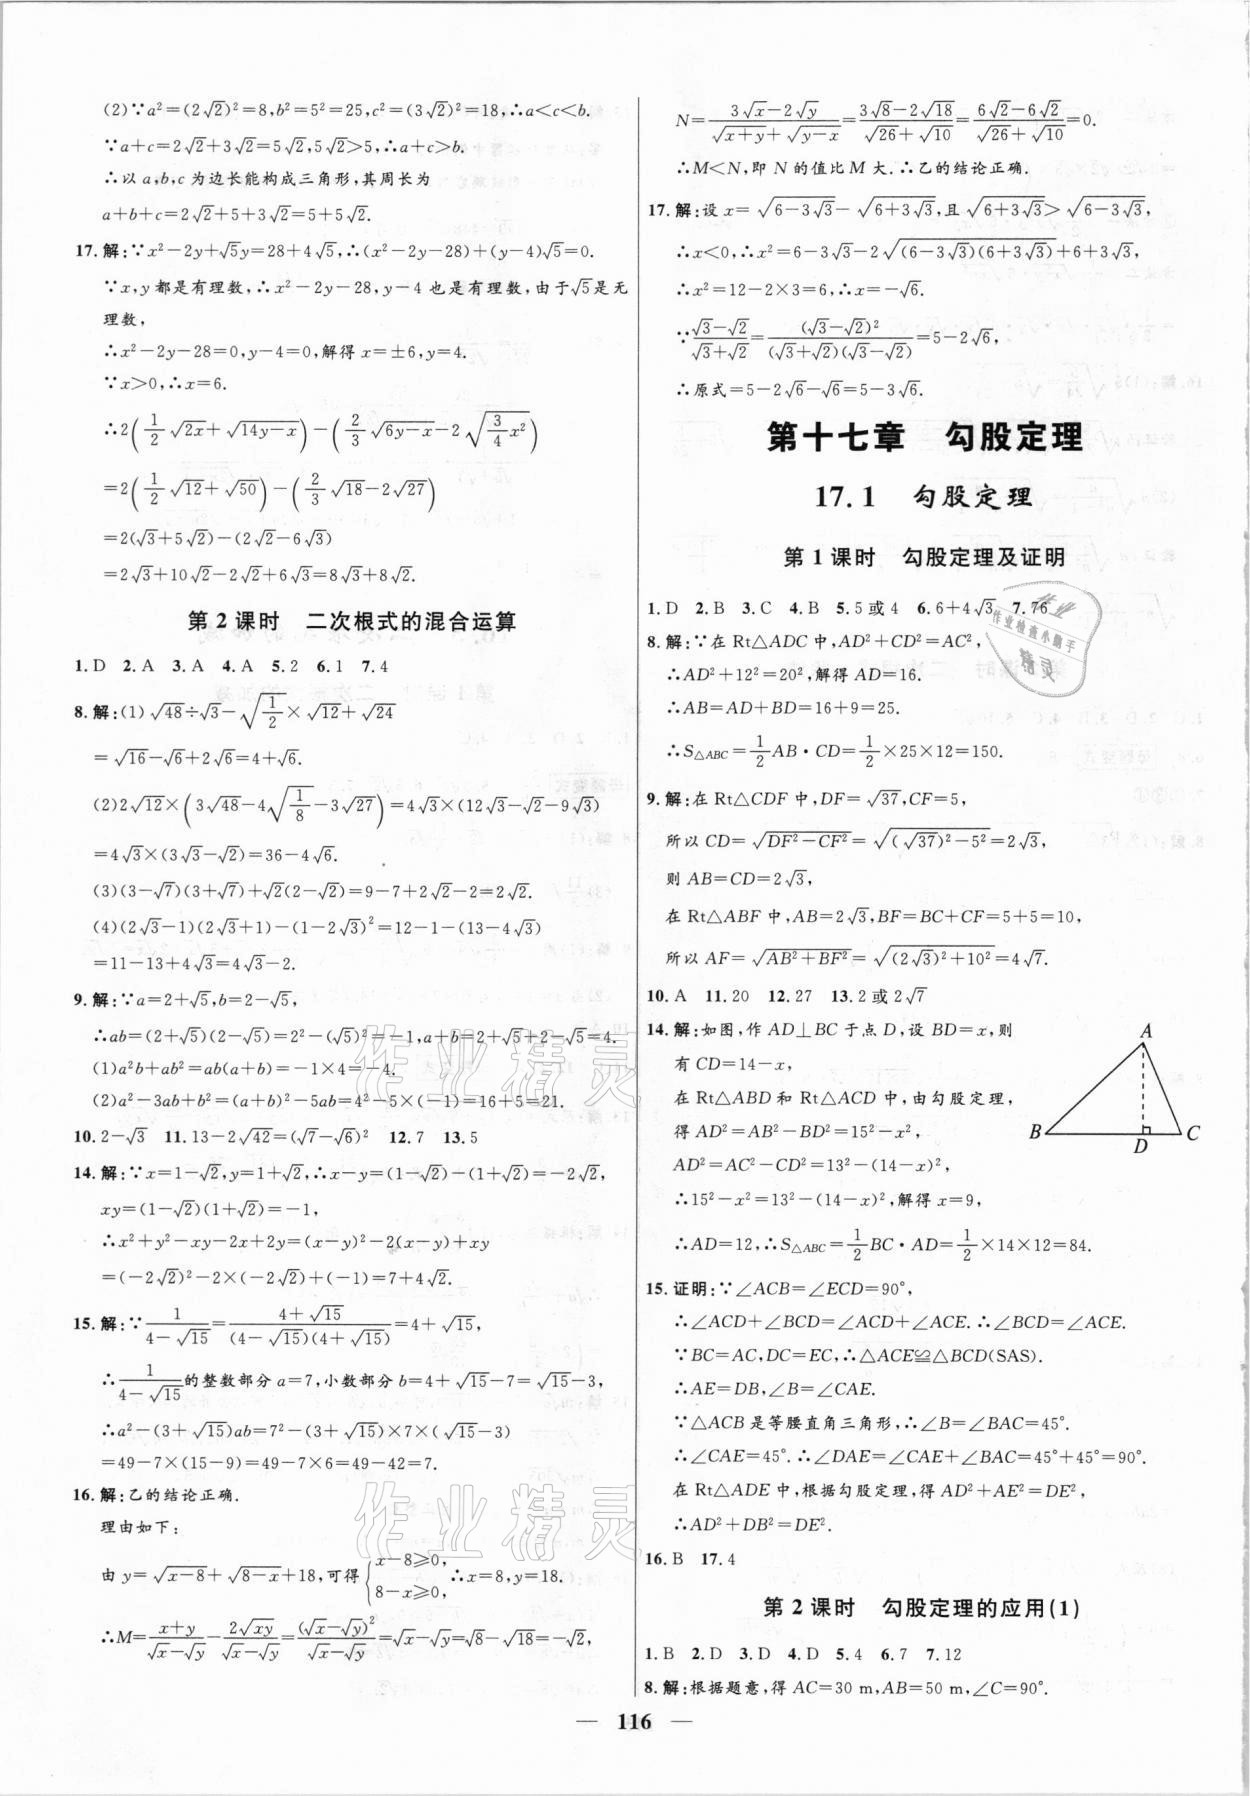 (2)∵a²=(2√2)²=8,b²=5²=25,c²=(3√2)²=18,∴a<c<b.
∵a+c=2√2+3√2=5√2,5√2>5,∴a+c>b.
∴以 a,b,c 为边长能构成三角形,其周长为
a+b+c=2√2+5+3√2=5+5√2.
17.解:∵x²-2y+√5y=28+4√5,∴(x²-2y-28)+(y-4)√5=0.
∵x,y 都是有理数,∴x²-2y-28,y-4 也是有理数,由于√5是无
理数,
∴x²-2y-28=0,y-4=0,解得 x=±6,y=4.
∵x>0,∴x=6.
∴2(1/2√(2x)+√(14y-x))-(2/3√(6y-x)-2√(3/4x²))
=2(1/2√12+√50)-(2/3√18-2√27)
=2(√3+5√2)-(2√2-6√3)
=2√3+10√2-2√2+6√3=8√3+8√2.
第2课时 二次根式的混合运算
1.D 2.A 3.A 4.A 5.2 6.1 7.4
8.解:(1)√48÷√3-√(1/2)×√12+√24
=√16-√6+2√6=4+√6.
(2)2√12×(3√48-4√(1/8)-3√27)=4√3×(12√3-√2-9√3)
=4√3×(3√3-√2)=36-4√6.
(3)(3-√7)(3+√7)+√2(2-√2)=9-7+2√2-2=2√2.
(4)(2√3-1)(2√3+1)-(1-2√3)²=12-1-(13-4√3)
=11-13+4√3=4√3-2.
9.解:∵a=2+√5,b=2-√5,
∴ab=(2+√5)(2-√5)=2²-(√5)²=-1,a+b=2+√5+2-√5=4.
(1)a²b+ab²=ab(a+b)=-1×4=-4.
(2)a²-3ab+b²=(a+b)²-5ab=4²-5×(-1)=16+5=21.
10.2-√3 11.13-2√42=(√7-√6)² 12.7 13.5
14.解:∵x=1-√2,y=1+√2,∴x-y=(1-√2)-(1+√2)=-2√2,
xy=(1-√2)(1+√2)=-1,
∴x²+y²-xy-2x+2y=(x-y)²-2(x-y)+xy
=(-2√2)²-2×(-2√2)+(-1)=7+4√2.
15.解:∵1/(4-√15)=(4+√15)/((4-√15)(4+√15))=4+√15,
∴1/(4-√15)的整数部分 a=7,小数部分 b=4+√15-7=√15-3,
∴a²-(3+√15)ab=7²-(3+√15)×7×(√15-3)
=49-7×(15-9)=49-7×6=49-42=7.
16.解:乙的结论正确.
理由如下:
由 y=√(x-8)+√(8-x)+18,可得{x-8≥0, 8-x≥0,∴x=8,y=18.
∴M=(x+y)/(√x-√y)-2√(xy)/(√x-√y)=(√x-√y)²/(√x-√y)=√x-√y=√8-√18=-√2,
N=(3√x-2√y)/(√(x+y)+√(y-x))=(3√8-2√18)/(√26+√10)=(6√2-6√2)/(√26+√10)=0.
∴M<N,即 N 的值比 M 大.∴乙的结论正确.
17.解:设 x=√(6-3√3)-√(6+3√3),且√(6+3√3)>√(6-3√3),
∴x<0,∴x²=6-3√3-2√((6-3√3)(6+3√3))+6+3√3,
∴x²=12-2×3=6,∴x=-√6.
∵(√3-√2)/(√3+√2)=(√3-√2)²/((√3+√2)(√3-√2))=5-2√6,
∴原式=5-2√6-√6=5-3√6.
第十七章 勾股定理
17.1 勾股定理
第1课时 勾股定理及证明
1.D 2.B 3.C 4.B 5.5或4 6.6+4√3 7.76
8.解:∵在 Rt△ADC 中,AD²+CD²=AC²,
∴AD²+12²=20²,解得 AD=16.
∴AB=AD+BD=16+9=25.
∴S△ABC=1/2AB·CD=1/2×25×12=150.
9.解:在 Rt△CDF 中,DF=√37,CF=5,
所以 CD=√(DF²-CF²)=√((√37)²-5²)=2√3,
则 AB=CD=2√3,
在 Rt△ABF 中,AB=2√3,BF=BC+CF=5+5=10,
所以 AF=√(AB²+BF²)=√((2√3)²+10²)=4√7.
10.A 11.20 12.27 13.2或2√7
14.解:如图,作 AD⊥BC 于点 D,设 BD=x,则
有 CD=14-x,
在 Rt△ABD 和 Rt△ACD 中,由勾股定理,
得 AD²=AB²-BD²=15²-x²,
AD²=AC²-CD²=13²-(14-x)²,
∴15²-x²=13²-(14-x)²,解得 x=9,
∴AD=12,∴S△ABC=1/2BC·AD=1/2×14×12=84.
A
B
D
C
15.证明:∵∠ACB=∠ECD=90°,
∴∠ACD+∠BCD=∠ACD+∠ACE.∴∠BCD=∠ACE.
∵BC=AC,DC=EC,∴△ACE≌△BCD(SAS).
∴AE=DB,∠B=∠CAE.
∵△ACB 是等腰直角三角形,∴∠B=∠BAC=45°.
∴∠CAE=45°.∴∠DAE=∠CAE+∠BAC=45°+45°=90°.
在 Rt△ADE 中,根据勾股定理,得 AD²+AE²=DE²,
∴AD²+DB²=DE².
16.B 17.4
第2课时 勾股定理的应用(1)
1.B 2.D 3.D 4.D 5.4 6.7 7.12
8.解:根据题意,得 AC=30 m,AB=50 m,∠C=90°.
— 116 —
作业
作业检查小助手
精灵
作业精灵
作业精灵